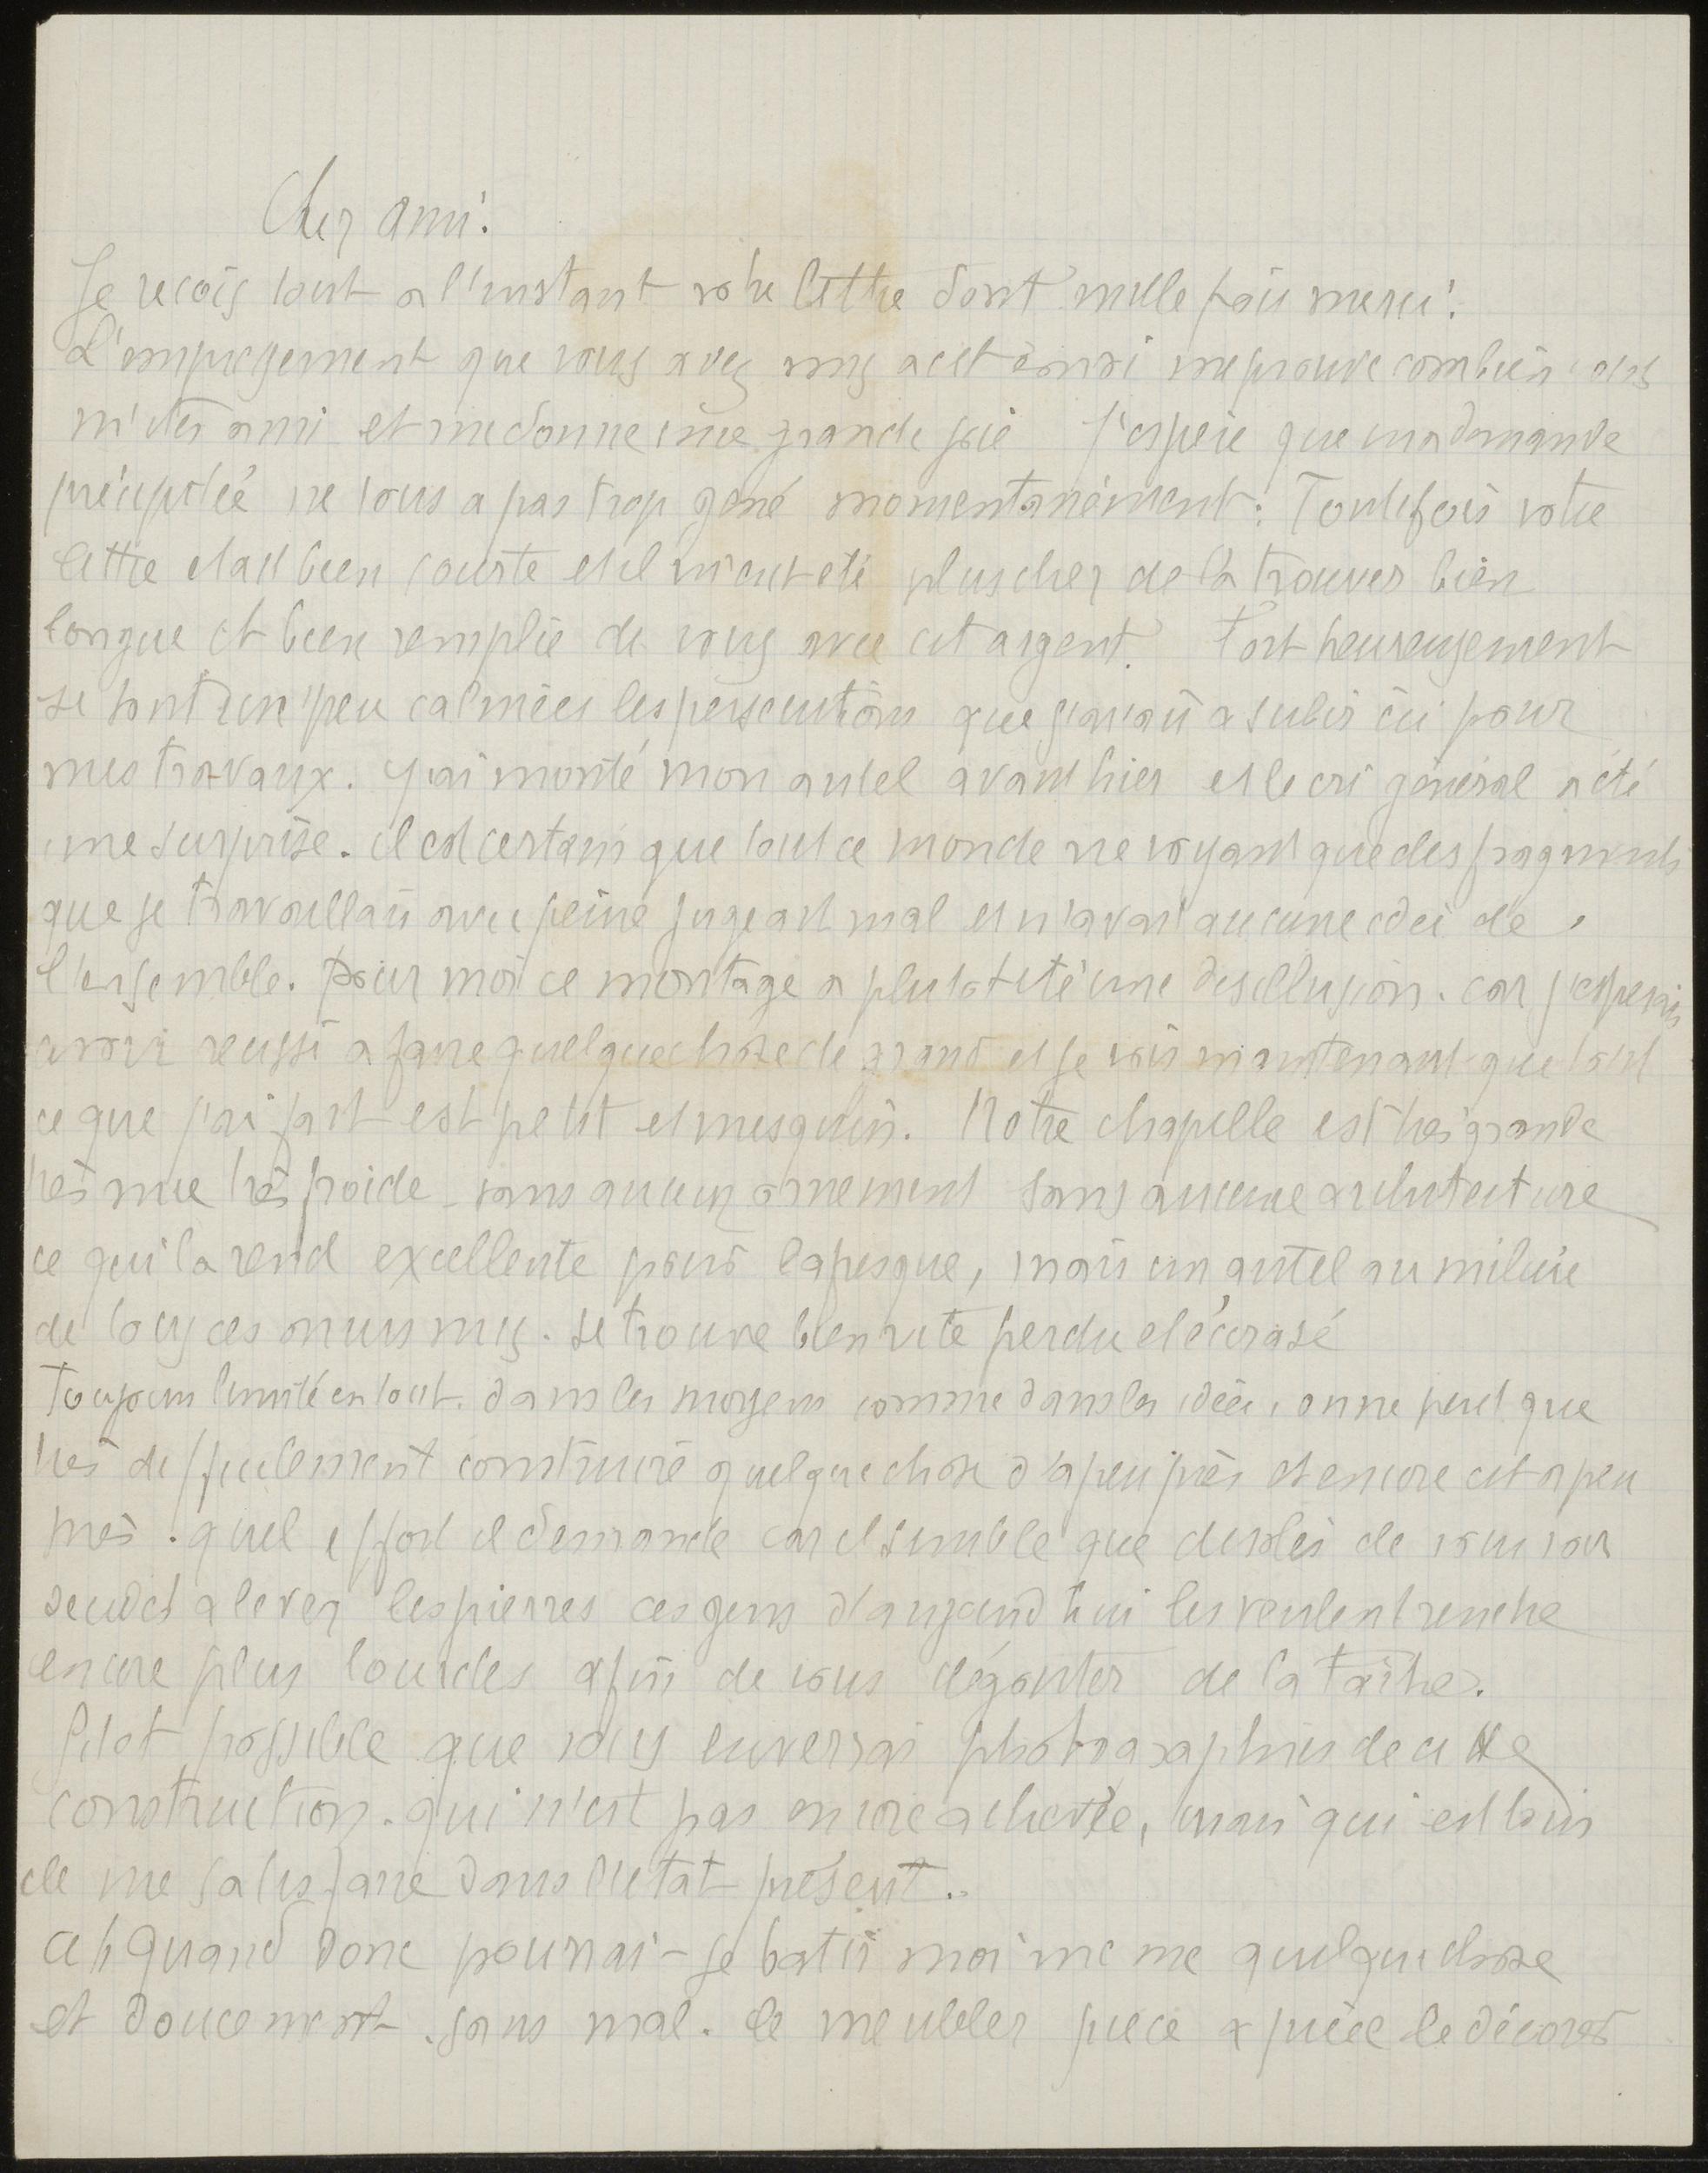 Cher ami.
Je recois tout a l'instant votre lettre dont mille fois merci.
L'empressement que vous avez mis a cet envoi me prouve combien vous
m'etes ami et me donne une grande joie j'espere que ma demande
précipitée ne vous a pas trop gené momentanément. Toutefois votre
lettre etait bien courte et il m'eut eté plus cher de la trouver bien
longue et bien remplie de vous avec cet argent. Fort heureusement
se sont un peu calmées les persecutions que j'avais a subir ici pour
mes travaux. J'ai monté mon autel avant hier et le cri général a été
une surprise. il est certain que tout ce monde ne voyant que des fragments
que je travaillais avec peine jugeait mal et n'avait aucune idée de
l'ensemble. pour moi ce montage a plutot eté une desillusion. car j'esperais
avoir reussi a faire quelque chose de grand et je vois maintenant que tout
ce que j'ai fait est petit et mesquin. Notre chapelle est très grande
très nue très froide sans aucun ornement sans aucune architecture
ce qui la rend excellente pour la fresque, mais un autel au milieu
de tous ces murs nus. se trouve bien vite perdu et écrasé
Toujours limité en tout. dans les moyens comme dans les idées, on ne peut que
très difficilement construire quelque chose d'a peu près et encore cet a peu
près. quel effort il demande car il semble que
a lever les pierres ces gens d'aujourd'hui les veulent rendre
encore plus lourdes afin de vous dégouter de la tâche.
Sitot possible que vous enverrai photographies de cette
construction. qui n'est pas encore achevée, mais qui est loin
de me satisfaire dans l'etat présent..
ah quand donc pourrai-je batir moi meme quelque chose
et doucement. sans mal. le meubler piece a pièce le décorer